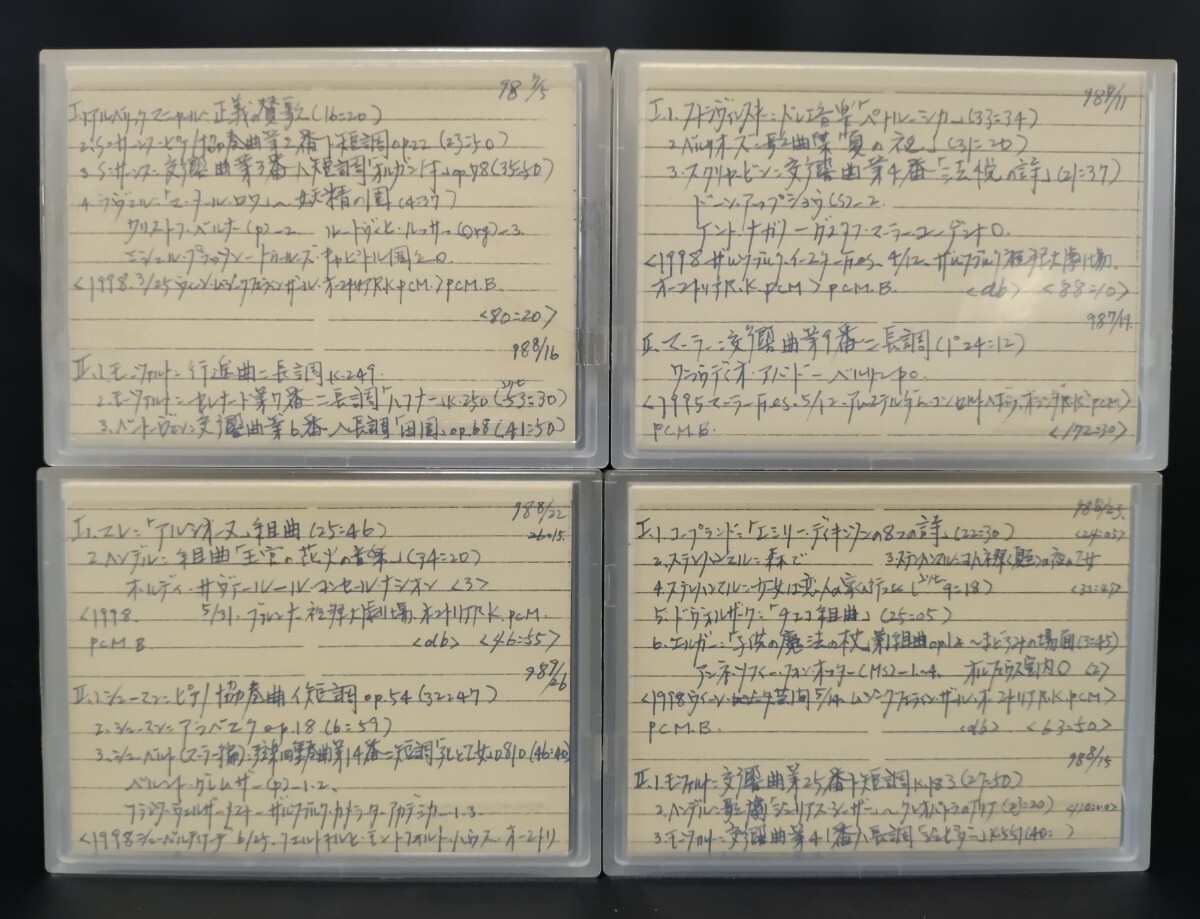 98 7/5
I.1.アルベリック・マニャール=正義の賛歌(16=20)
2.サン・サーンス=ピアノ協奏曲第2番ト短調op.22(23=50)
3.サン・サーンス=交響曲第3番ハ短調「オルガン付」op.78(35=50)
4.ラヴェル=「マ・メール・ロワ」〜妖精の園(4=37)
(p)-2. (org)-3.
ミシェル・プラッソン-トゥールーズ・キャピトル国立O.
<1998.3/25 ウィーン・ムジークフェラインザール・オーストリアR.K.PCM.>PCM.B.
<80=20>
98 8/16
II.1.モーツァルト=行進曲ニ長調K.249.
2.モーツァルト=セレナード第7番ニ長調「ハフナー」K.250(53=30)
3.ベートーヴェン=交響曲第6番ヘ長調「田園」op.68(41=50)
98 7/11
I.1.ストラヴィンスキー=バレエ音楽「ペトルーシュカ」(33=34)
2.ベルリオーズ=歌曲集「夏の夜」(31=20)
3.スクリャービン=交響曲第4番「法悦の詩」(21=37)
ドーン・アップショウ(S)-2.
ケント・ナガノ-グスタフ・マーラー・ユーゲントO.
<1998 ザルツブルク・イースターFes. 4/12. ザルツブルク祝祭大劇場.
オーストリアR.K.PCM>PCM.B. <db> <88=10>
98 7/19.
II.マーラー=交響曲第9番ニ長調(1°24=12)
クラウディオ・アバド-ベルリンpo.
<1995 マーラーFes. 5/12. アムステルダム・コンセルトヘボウ. オランダR.K.PCM>
PCM.B. <172=30>
98 8/22
I.1.マレ=「アルシオーヌ」組曲(25=46) 26=15.
2.ヘンデル=組曲「王宮の花火の音楽」(34=20)
ホルディ・サヴァール-ル・コンセール・ナシオン <3>
<1998. 5/31. 祝祭大劇場. オーストリアR.K.PCM.
PCM.B <db> <46=55>
98 9/26
II.1.シューマン=ピアノ協奏曲イ短調op.54(32=47)
2.シューマン=アラベスクop.18(6=59)
3.シューベルト(マーラー編)=弦楽四重奏曲第14番ニ短調「死と乙女」D810(46=40)
ベルント・グレムザー(p)-1.2.
フランツ・ウェルザー=メスト-ザルツブルク・カメラータ・アカデミカ-1.3.
<1998 シューベルティアーデ 6/25. フェルトキルヒ・モントフォルトハウス. オーストリア
I.1.コープランド=「エミリー・ディキンソンの8つの詩」(22=30) <24=05>
2.ステンハンマル=森で 3.ステンハンマル=
4.ステンハンマル=少女は恋人の家へ行った(9=18)
5.ドヴォルザーク=「チェコ組曲」(25=05)
6.エルガー=「子供の魔法の杖」第1組曲op.1a〜まどろみの場面(3=45)
アンネ・ゾフィー・フォン・オッター(Ms)-1〜4. オルフェウス室内O (2)
<1998 ウィーン芸術週間 5/14. ムジークフェラインザール. オーストリアR.K.PCM>
PCM.B. <db> <63=50>
98 8/15
II.1.モーツァルト=交響曲第25番ト短調K.183(27=50)
2.ヘンデル=歌劇「ジュリアス・シーザー」〜クレオパトラのアリア
3.モーツァルト=交響曲第41番ハ長調「ジュピター」K.551(40= )